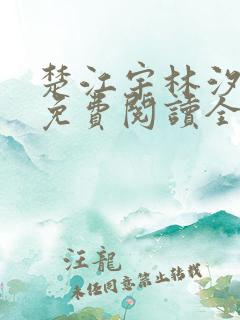 楚江宇林汐
免費閱讀全
汪龍
未经同意禁止转载